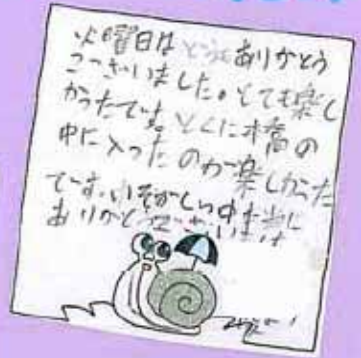 火曜日はどうもありがとう
ございました。とても楽し
かったです。とくに橋の
中に入ったのが楽しかった
です。いそがしい中本当に
ありがとうございました